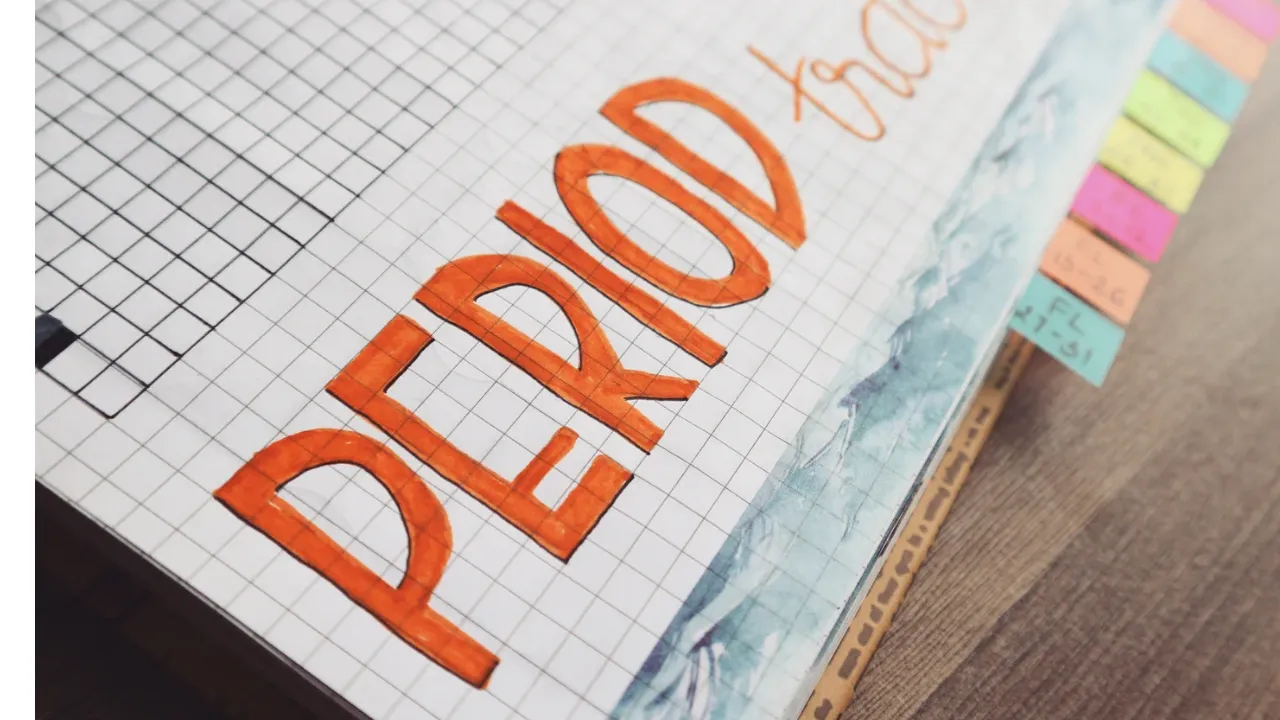 PERIOD trac
13-26
FL
27-31